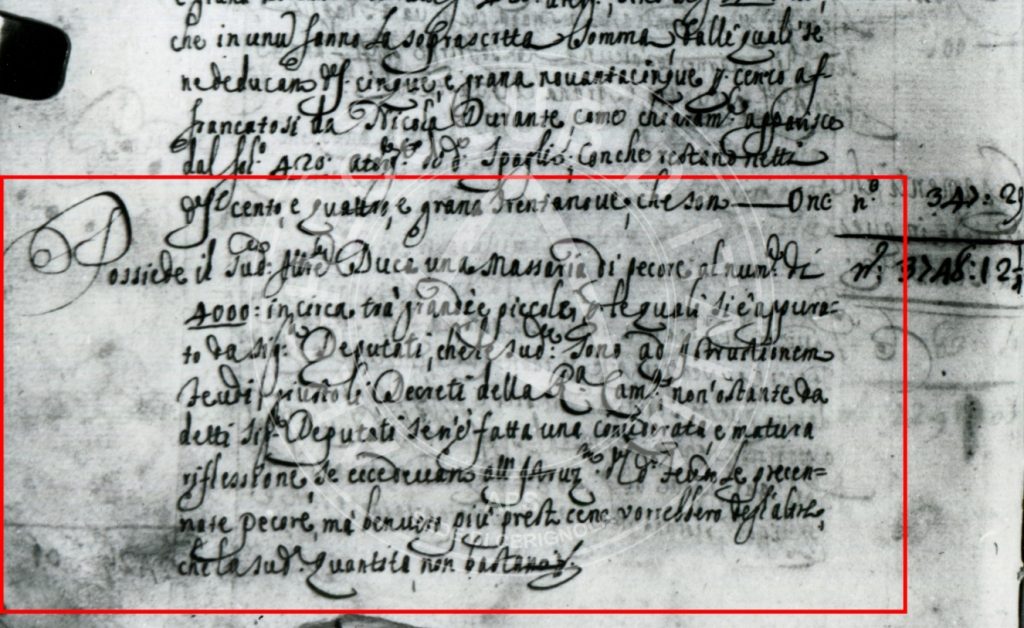 che in unu fanno la soprascritta somma, dalli quali se
ne deducano d.ti cinque, e grana novantacinque p. cento af-
francatosi da Nicola Durante, come chiaram.te apparisce
dal fol: 420: Spoglio: Conche restano netti
cento, e quattro, e grana trentanove, che son —— Onc n.o 347: 29
Possiede il Sud.o Duca una Massaria di pecore al num.o di n.o: 3748: 12
4000: incirca, trà grandi, e piccole, le quali si è appura-
to da Sig.ri Deputati, che le sud.e sono ad instructionem
feudi, giusto li Decreti della R.a Cam.a, non'ostante da
detti Sig.ri Deputati se n'è fatta una considerata, e matura
riflessione, se eccedevano all' feudo le precen-
nate pecore, mà benvero più prest. cene vorrebbero dell'altre,
che la sud.a quantità non bastano